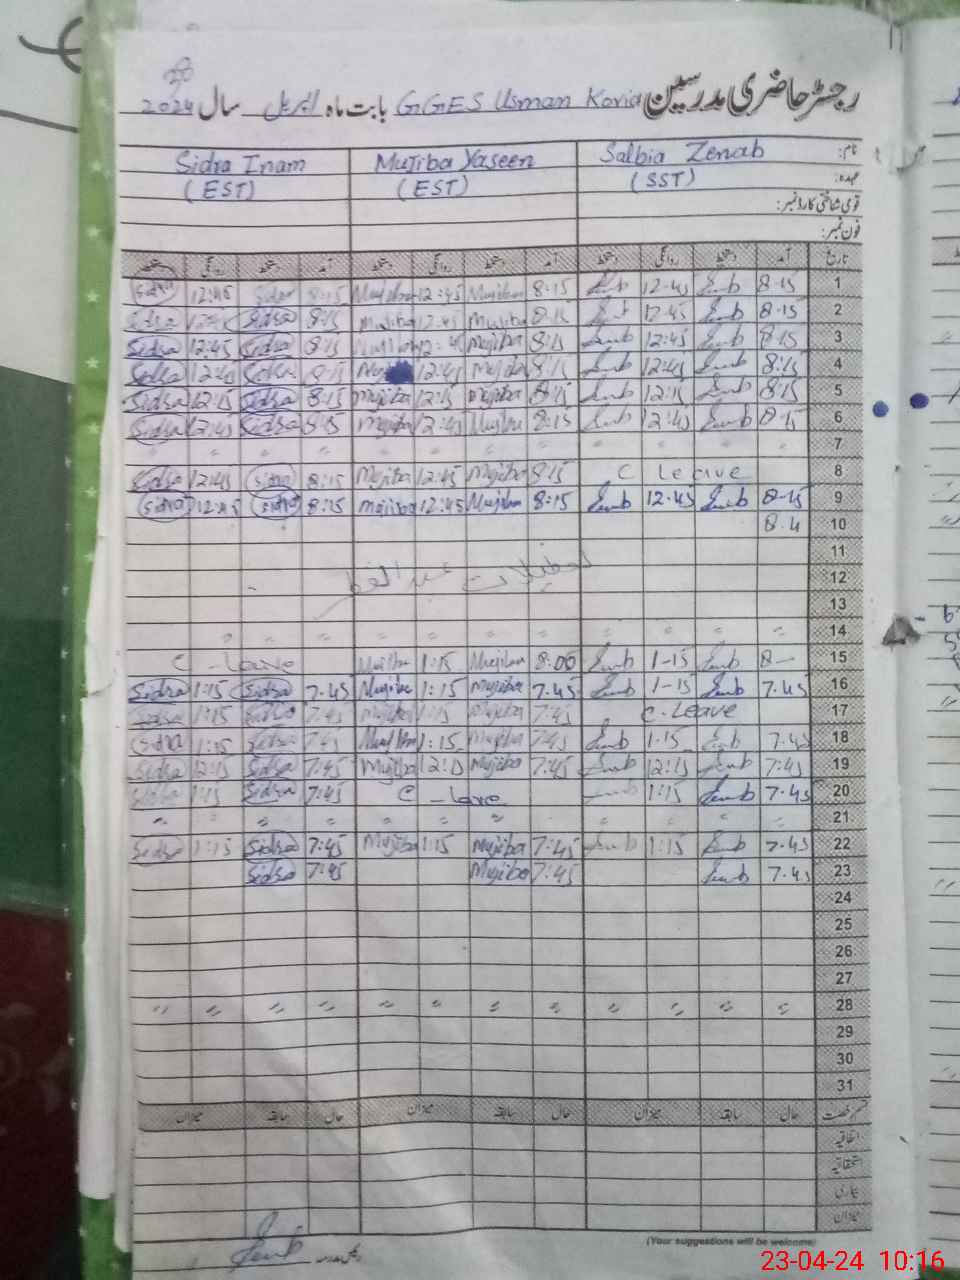 رجسٹر حاضری مدرسین GGES Usman Koria بابت ماہ اپریل سال 2024
نام: Salbia Zenab Mujiba Yaseen Sidra Inam
عہدہ: (SST) (EST) (EST)
قومی شناختی کارڈ نمبر:
فون نمبر:
تاریخ آمد دستخط روانگی دستخط آمد دستخط روانگی دستخط آمد دستخط روانگی دستخط
1 8-15 12-45 8:15 Mujiba 12:45 Mujiba 8:15 Sidra 12:45 Sidra
2 8-15 12.45 8:15 Mujiba 12:45 Mujiba 8:15 Sidra 12:45 Sidra
3 8-15 12:45 8:15 Mujiba 12:45 Mujiba 8:15 Sidra 12:45 Sidra
4 8:15 12:45 8:15 Mujiba 12:45 8:15 Sidra 12:45 Sidra
5 8:15 12:15 8:15 Mujiba 12:15 Mujiba 8:15 Sidra 12:15 Sidra
6 8-15 12:45 8:15 Mujiba 12:45 Mujiba 8:15 Sidra 12:45 Sidra
7
8 C Leave 8:15 Mujiba 12:45 Mujiba 8:15 Sidra 12:45 Sidra
9 8-15 12.45 8:15 Mujiba 12:45 Mujiba 8:15 Sidra 12:45 Sidra
10 8.4
11
12 تعطیلات عید الفطر
13
14
15 8- 1-15 8:00 Mujiba 1:15 Mujiba C-leave
16 7.45 1-15 7.45 Mujiba 1:15 Mujiba 7.45 Sidra 1:15 Sidra
17 C.Leave 7:45 Mujiba 1:15 Mujiba 7:45 Sidra 1:15 Sidra
18 7.45 1.15 7:45 Mujiba 1:15 Mujiba 7:45 Sidra 1:15 Sidra
19 7:45 12:15 7:45 Mujiba 12:15 Mujiba 7:45 Sidra 12:15 Sidra
20 7.45 1:15 C-leave 7:45 Sidra 1:15 Sidra
21
22 7.45 1:15 7:45 Mujiba 1:15 Mujiba 7:45 Sidra 1:15 Sidra
23 7.45 7:45 Mujiba 7:45 Sidra
24
25
26
27
28
29
30
31
قسم رخصت حال سابقہ میزان حال سابقہ میزان حال سابقہ میزان
اتفاقیہ
استحقاقیہ
بیماری
میزان
(Your suggestions will be welcome)
23-04-24 10:16